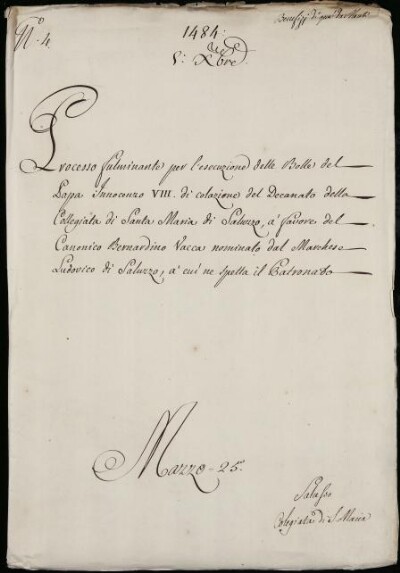 N.° 4.
1484.
5. Xbre
Processo fulminante per l'esecuzione delle Bolle del
Papa Innocenzo VIII. di colazione del Decanato della
Collegiata di Santa Maria di Saluzzo, a' favore del
Canonico Bernardino Vacca nominato dal Marchese
Ludovico di Saluzzo, a' cui ne spetta il Patronato
Mazzo 25.
Saluzzo
Colegiata di S. Maria